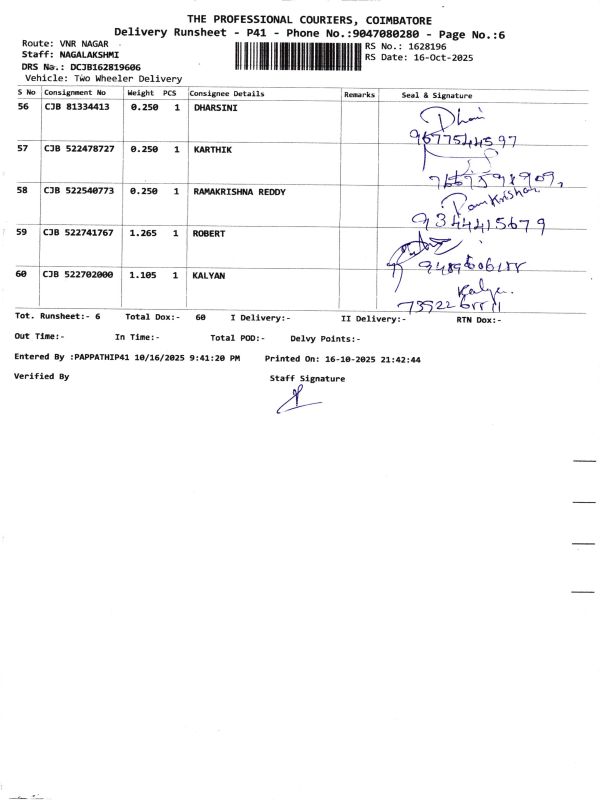 THE PROFESSIONAL COURIERS, COIMBATORE
Delivery Runsheet - P41 - Phone No.:9047080280 - Page No.:6
Route: VNR NAGAR RS No.: 1628196
Staff: NAGALAKSHMI RS Date: 16-Oct-2025
DRS No.: DCJB162819606
Vehicle: Two Wheeler Delivery
S No Consignment No Weight PCS Consignee Details Remarks Seal & Signature
56 CJB 81334413 0.250 1 DHARSINI
57 CJB 522478727 0.250 1 KARTHIK
58 CJB 522540773 0.250 1 RAMAKRISHNA REDDY
9344415679
59 CJB 522741767 1.265 1 ROBERT
60 CJB 522702000 1.105 1 KALYAN
Kalyan.
Tot. Runsheet:- 6 Total Dox:- 60 I Delivery:- II Delivery:- RTN Dox:-
Out Time:- In Time:- Total POD:- Delvy Points:-
Entered By :PAPPATHIP41 10/16/2025 9:41:20 PM Printed On: 16-10-2025 21:42:44
Verified By Staff Signature